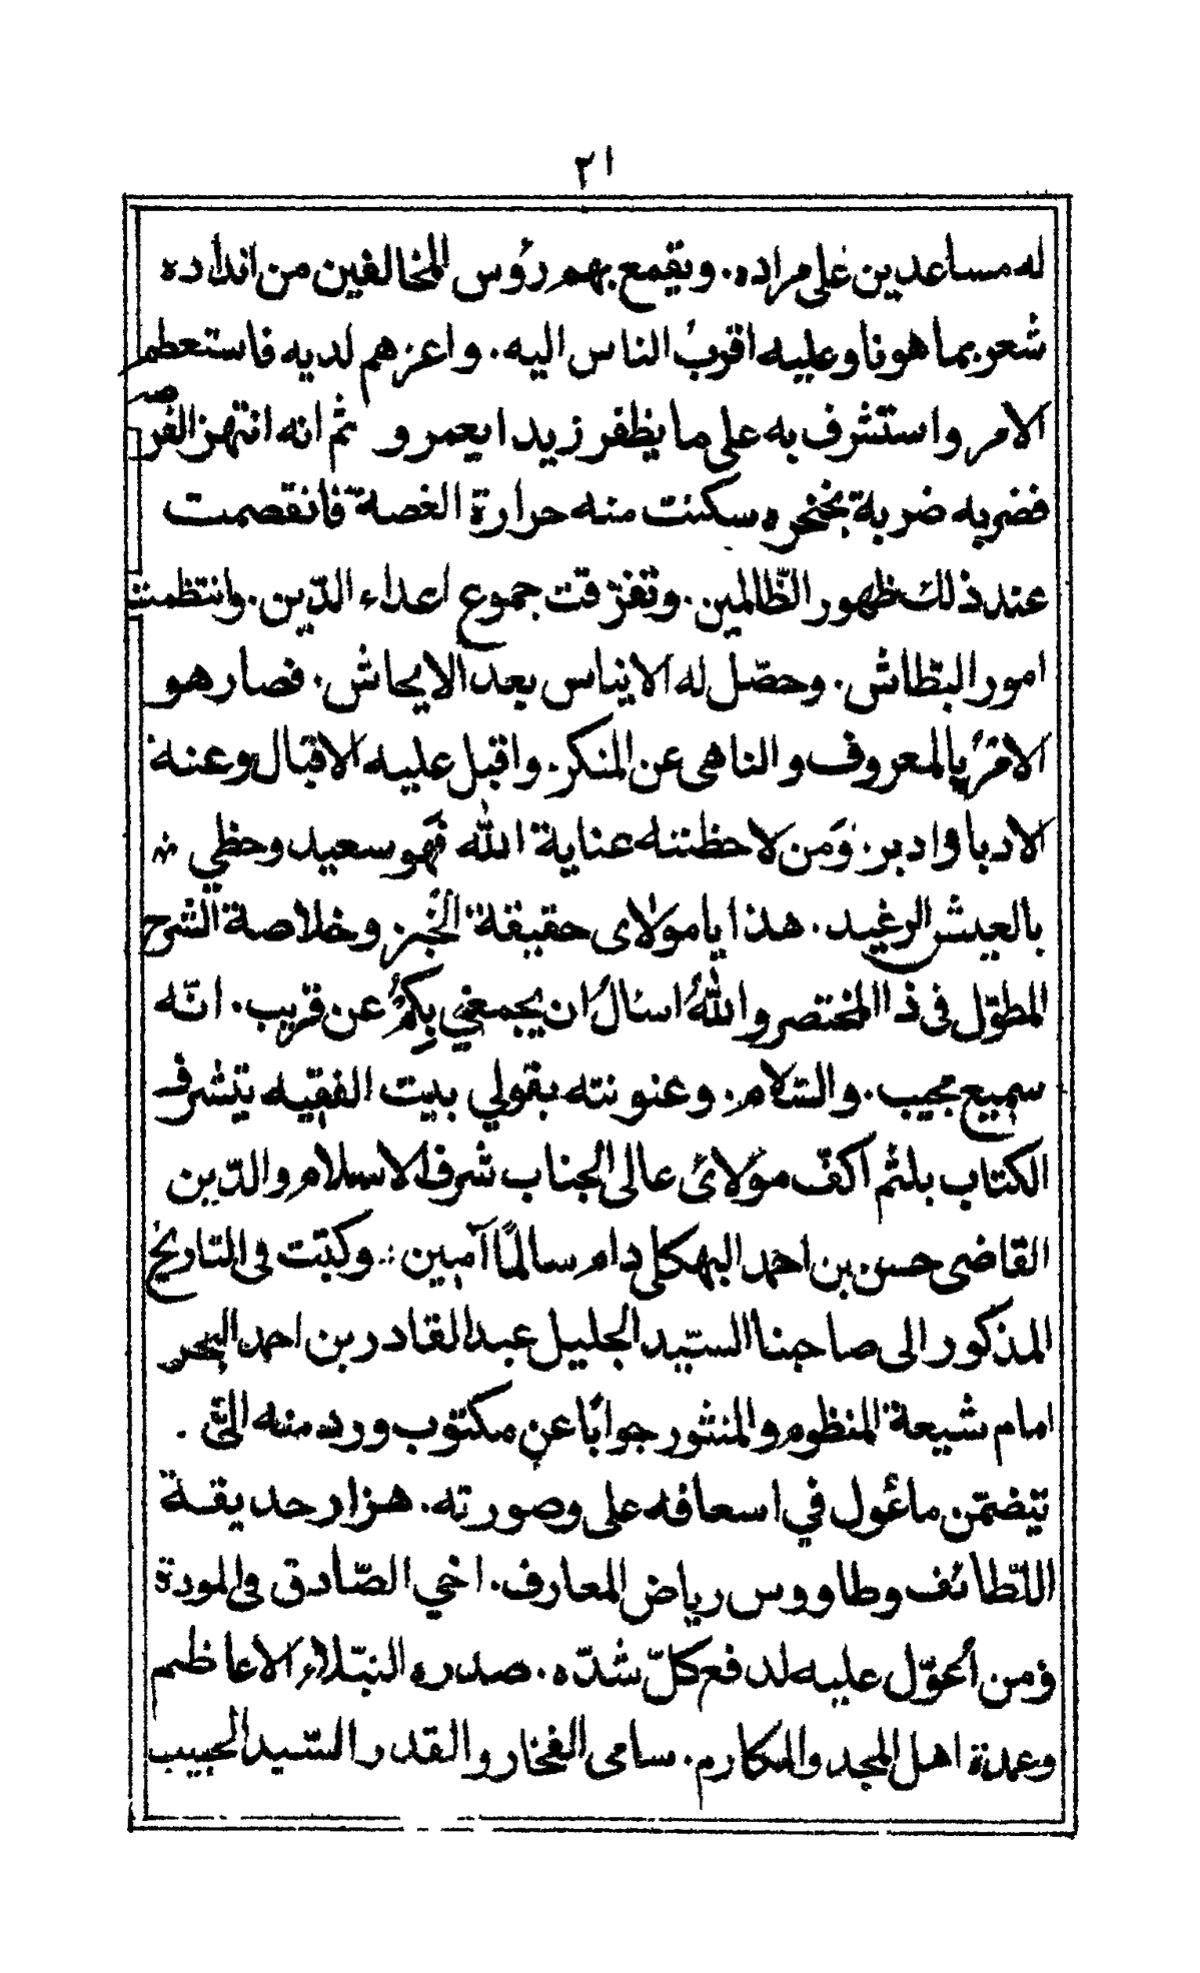 ٢١
له مساعدين على مراده. ويقمع بهم رؤس المخالفين من انداده
شعر بما هو ناو عليه اقربُ الناس اليه. واعزهم لديه فاستعظم
الامر واستشرف به على ما يظفر زيدا بعمرو ثم انه انتهز الفرصة
فضربه ضربة بخنجره سكنت منه حرارة الغصة فانقصمت
عند ذلك ظهور الظّالمين. وتفرّقت جموع اعداء الدّين. وانتظمت
امور البطّاش. وحصّل له الايناس بعد الايحاش. فصار هو
الامرُ بالمعروف والناهى عن المنكر. واقبل عليه الاقبال وعنه
الادبار ادبر. ومن لاحظته عناية الله فهو سعيد وحظي
بالعيش الرغيد. هذا يا مولاى حقيقة الخبر وخلاصة الشرح
المطوّل فى ذا المختصر واللهُ اسئالُ ان يجمعني بِكمُ عن قريب. انّه
سميع مجيب. والسّلام. وعنونته بقولي بيت الفقيه يتشرف
الكتاب بلثم اكفّ مولائ عالى الجناب شرف الاسلام والدّين
القاضى حسن بن احمد البهكلى دام سالمًا آمين ؞ وكتبت فى التاريخ
المذكور الى صاحبنا السيّد الجليل عبد القادر بن احمد البحر
امام شيعة المنظوم والمنثور جوابًا عن مكتوب ورد منه الىّ .
تيضمّن ماعُول في اسعافه على وصورته. هزار حديقة
اللّطائف وطاووس رياض المعارف. اخي الصّادق فى المودة
ؤمن اُحوّل عليه لدفع كلّ شدّه. صدره النبّلاء الاعاظم
وعمدة اهل المجد والمكارم. سامى الفخار والقدر السّيد الحبيب